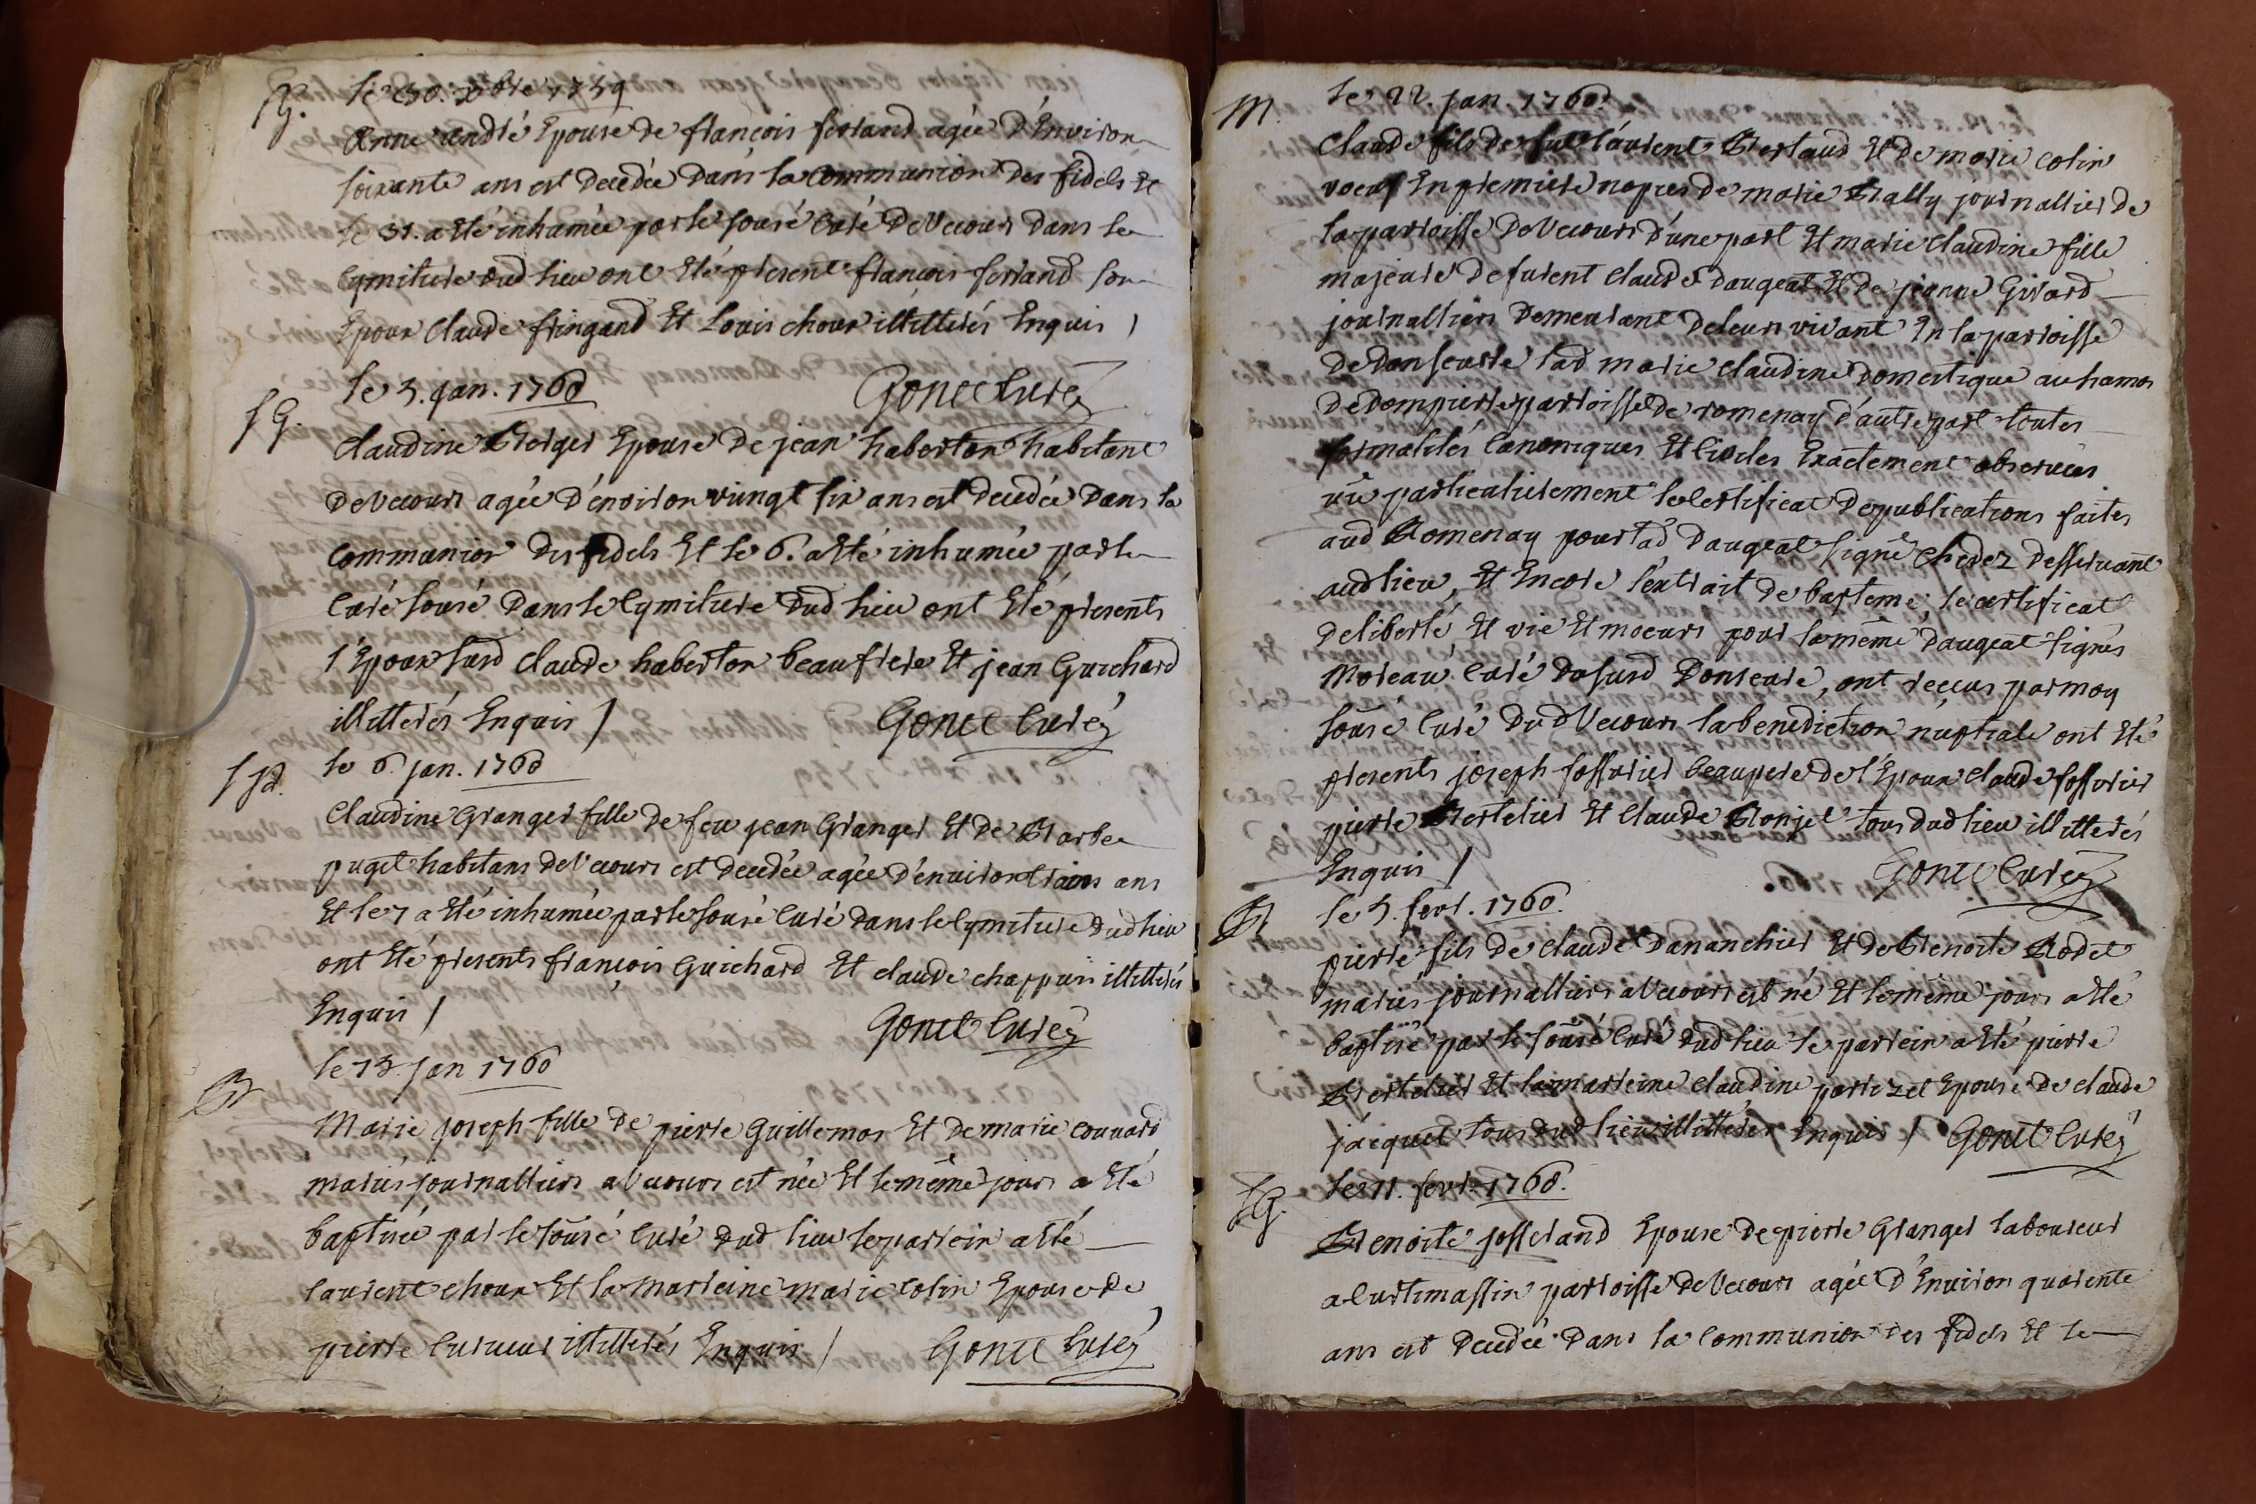 SG.
le 30. Xbre 1759
Anne André Epouse de françois ferrand agée d'Environ
soixante ans est decedée Dans la communion Des fidels Et
le 31. a Eté inhumée par le sousé Curé De Vecours Dans le
Cymitiere dud lieu ont Eté present françois ferrand son
Epoux Claude fringand Et Louis choux illitterés Enquis /
Gonet Curé
SG.
le 5. jan. 1760
Claudine Berger Epouse De jean haberton habitant
De Vecours agée D'environ vingt six ans est Decedée Dans la
communion Des fidels Et le 6. a Eté inhumée par le
Curé sousé Dans le Cymitiere Dud lieu ont Eté presents
l'Epoux susd Claude haberton beaufrere Et jean Guichard
illitterés Enquis /
Gonet Curé
SP.
le 6. jan. 1760
Claudine Granger fille De feu jean Granger Et de Barbe
puget habitans De Vecours est Decedée agée D'environ trois ans
Et le 7 a Eté inhumée par le sousé Curé Dans le Cymitiere Dud lieu
ont Eté presents françois Guichard Et claude chappuis illitterés
Enquis /
Gonet Curé
B
le 13. jan 1760
Marie joseph fille De pierre Guillemos Et De marie couvard
mariés journalliers a Vecours est née Et le même jours a Eté
baptisée par le sousé Curé Dud lieu le parrein a Eté
laurent choux Et la Marreine marie Colin Epouse de
pierre Cureur illitterés Enquis /
Gonet Curé
M.
le 22. jan. 1760.
Claude fils De fut laurent Bertaud Et De marie Colin
voeuf En premiere nopces De marie Bally journallier De
la parroisse De Vecours D'une part Et marie Claudine fille
majeure De furent Claude Daugeat Et De jeanne Girard
journalliers Demeurant De leurs vivant En la parroisse
De Donseurre lad marie Claudine Domestique au hamos
De Dompierre parroisse de romenay d'autre part toutes
formalités Canoniques Et Civiles Exactement observées
vû particulierement le Certificat De publications faites
aud Romenay pour lad Daugeat signé Chedez Desservant
aud lieu, Et Encore l'extrait de baptême, le certificat
De liberté Et vie Et moeurs pour la même Daugeat signés
Moreau Curé Dususd Donseure, ont reccus par moy
sousé Curé Dud Vecours la benediction nuptiale ont Eté
presents joseph fossurier beaupere de l'Epoux Claude fossurier
pierre Bertelier Et Claude Monjet tous Dud lieu illitterés
Enquis /
Gonet Curé
B
le 5. fevr. 1760.
pierre fils De claude Dananchier Et De Benoite Rodet
mariés journalliers a Vecours est né Et le même jours a Eté
baptisé par le sousé Curé Dud lieu le parrein a Eté pierre
Bertelier Et la marreine Claudine perrozet Epouse De claude
jacquet tous Dud lieu illitterés Enquis / Gonet Curé
SG.
le 11. fevr. 1760.
Benoite josserand Epouse De pierre Granger laboureur
a Curtimassin parroisse De Vecours agée D'Environ quarente
ans est Decedée Dans la Communion Des fidels Et le